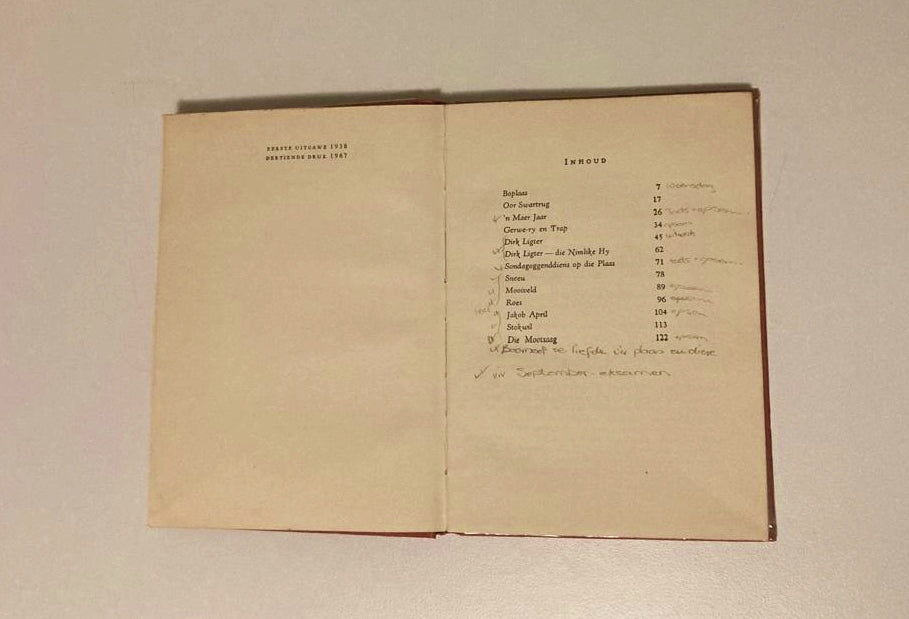 EERSTE UITGAWE 1938
DERTIENDE DRUK 1967
INHOUD
Boplaas 7 Woensdag
Oor Swartrug 17
'n Maer Jaar 26
Gerwe-ry en Trap 34
Dirk Ligter 45
Dirk Ligter — die Nimlike Hy 62
Sondagoggenddiens op die Plaas 71
Sneeu 78
Mooiveld 89
Roes 96
Jakob April 104
Stokwil 113
Die Mootsaag 122
se liefde vir plaas en diere
vir September-eksamen